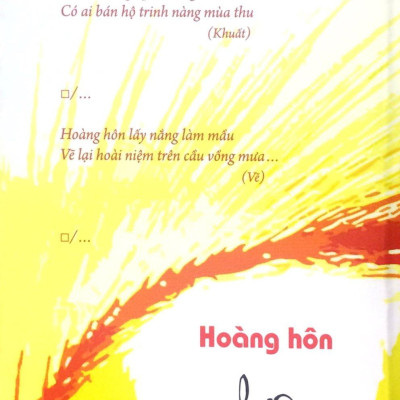 Có ai bán hộ trinh nàng mùa thu
(Khuất)
□/...
Hoàng hôn lấy nắng làm mầu
Vẽ lại hoài niệm trên cầu vồng mưa...
(Vẽ)
□/...
Hoàng hôn